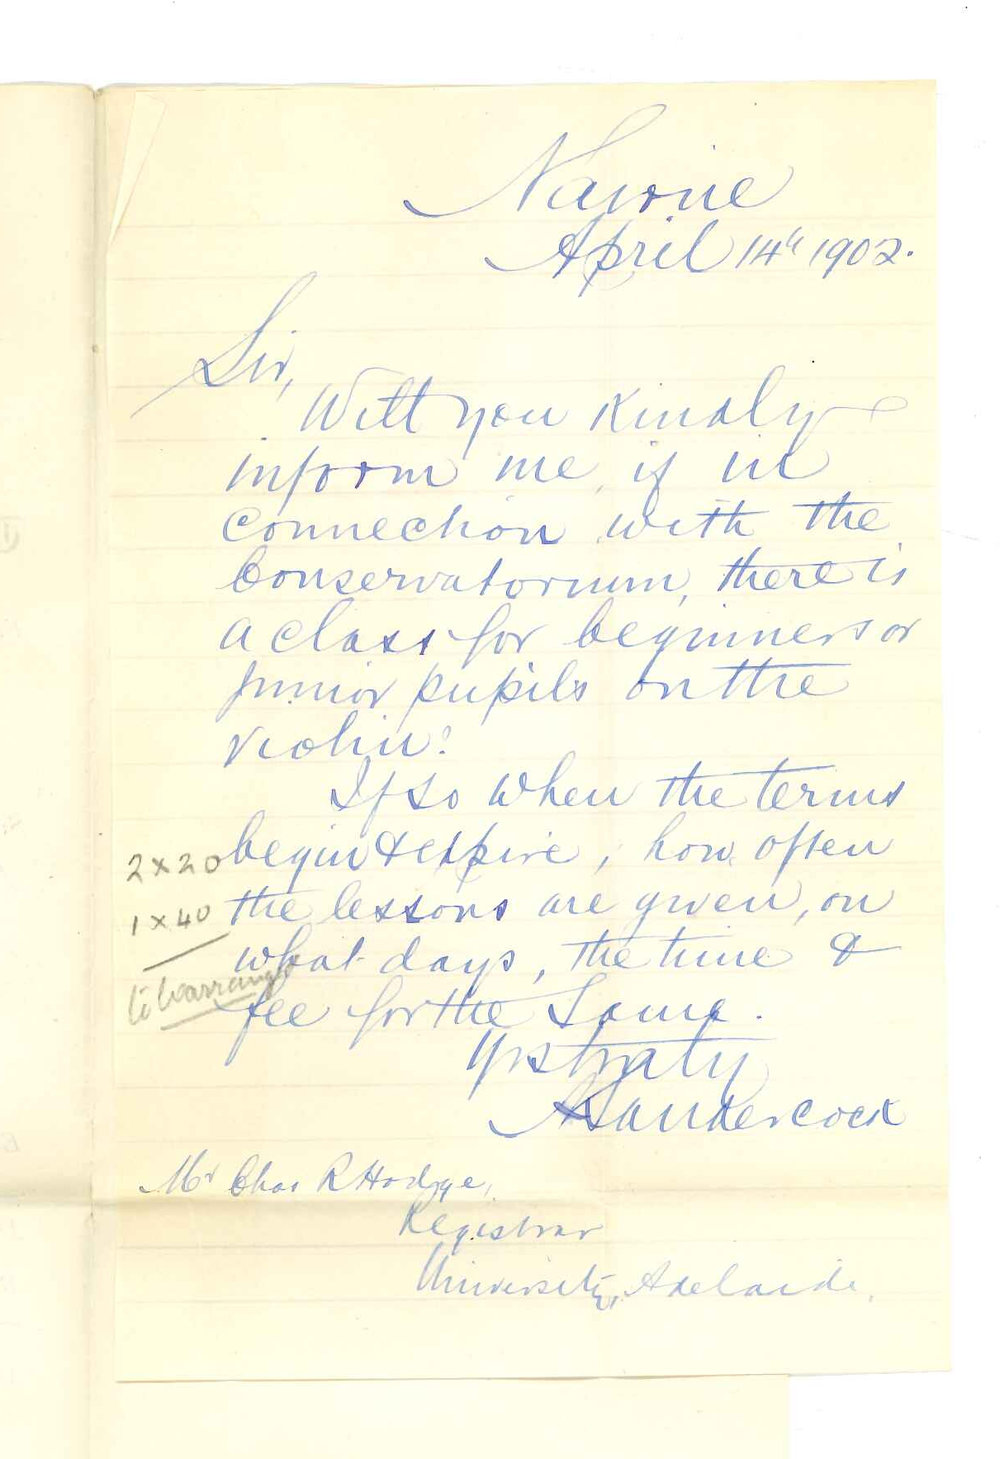 Nairne
April 14th 1902.
Sir,
Will you kindly
inform me, if in
connection with the
Conservatorium, there is
a class for beginners or
junior pupils on the
violin?
If so when the terms
begin & expire, how often
the lessons are given, on
what days, the time &
fee for the same.
Yrs truly
A Sandercock
Mr Chas R Hodge,
Registrar
University, Adelaide.
2 x 20
1 x 40
to